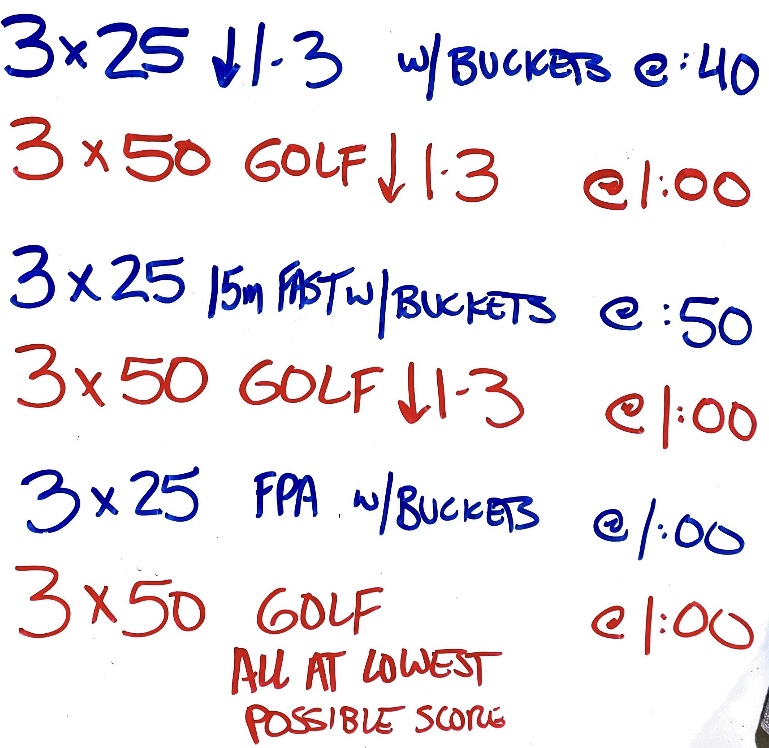 3 x 25 ↓1-3 w/BUCKETS @ :40
3 x 50 GOLF ↓1-3 @ 1:00
3 x 25 15m FAST w/BUCKETS @ :50
3 x 50 GOLF ↓1-3 @ 1:00
3 x 25 FPA w/BUCKETS @ 1:00
3 x 50 GOLF @ 1:00
ALL AT LOWEST
POSSIBLE SCORE